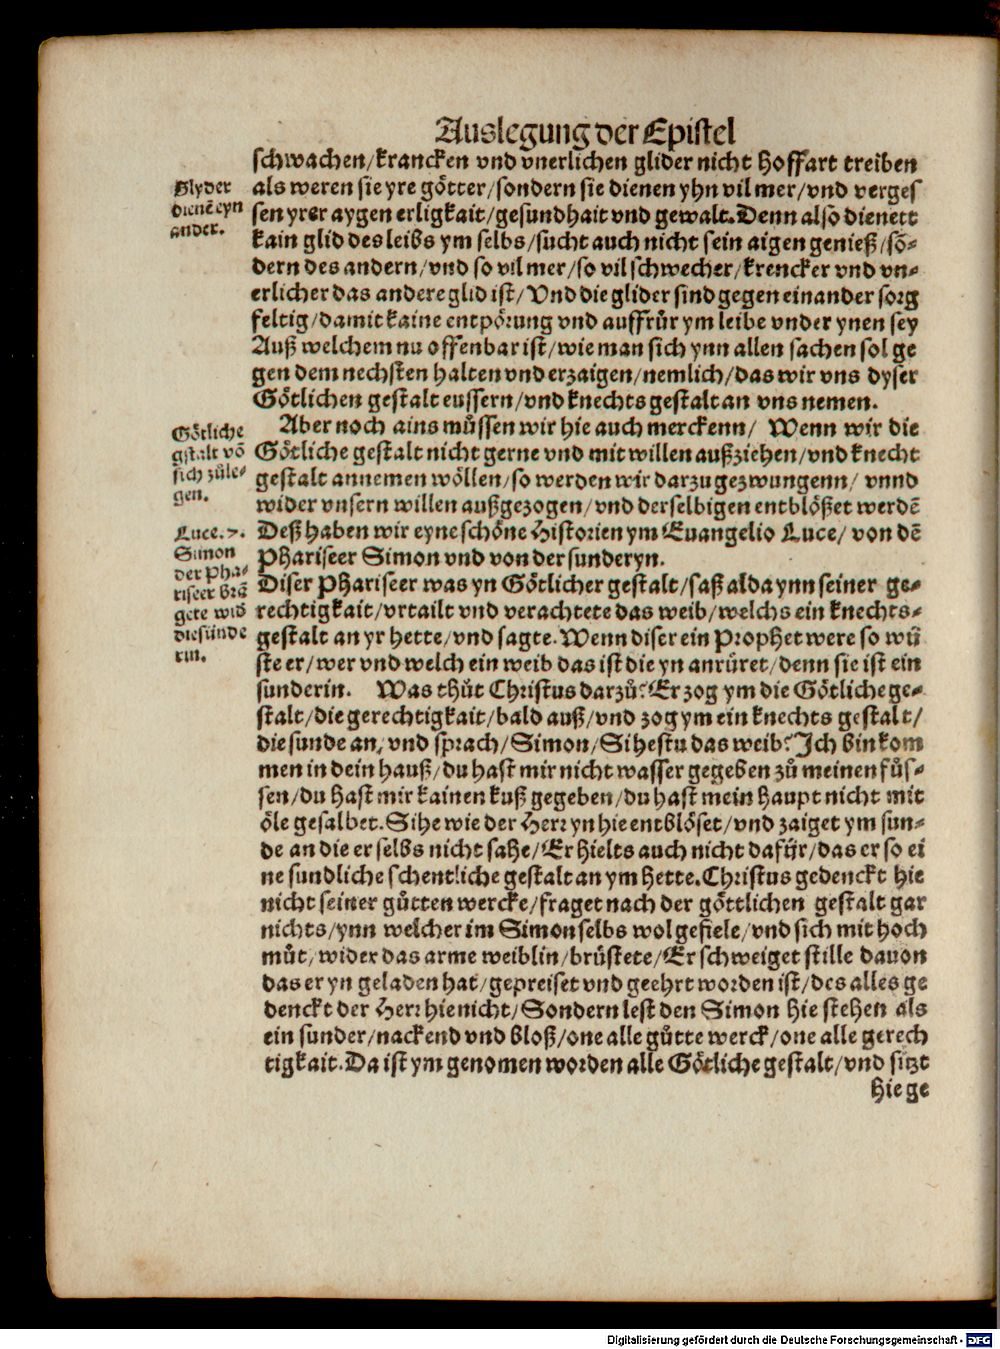 Auslegung der Epistel
schwachen/krancken vnd vnerlichen glider nicht hoffart treiben
als weren sie yre götter/sondern sie dienen yhn vil mer/vnd verges
sen yrer aygen erligkait/gesundhait vnd gewalt. Denn also dienett
kain glid des leibs ym selbs/sucht auch nicht sein aigen genieß/sō-
dern des andern/vnd so vil mer/so vil schwecher/krencker vnd vn-
erlicher das andere glid ist/Vnd die glider sind gegen einander sorg
feltig/damit kaine entpörung vnd auffrůr ym leibe vnder ynen sey
Auß welchem nu offenbar ist/wie man sich ynn allen sachen sol ge
gen dem nechsten halten vnd erzaigen/nemlich/das wir vns dyser
Götlichen gestalt eussern/vnd knechts gestalt an vns nemen.
Glyder
dienē eyn
ander.
Aber noch ains můssen wir hie auch merckenn/ Wenn wir die
Götliche gestalt nicht gerne vnd mit willen außziehen/vnd knecht
gestalt annemen wöllen/so werden wir darzu gezwungenn/ vnnd
wider vnsern willen außgezogen/vnd derselbigen entblößet werdē
Deß haben wir eyne schöne Historien ym Euangelio Luce/ von dē
Phariseer Simon vnd von der sunderyn.
Götliche
gstalt vō
sich zůle-
gen.
Luce.7.
Simon
der Pha-
riseer brā
gete wid
die sünde
rin.
Diser Phariseer was yn Götlicher gestalt/saß alda ynn seiner ge-
rechtigkait/vrtailt vnd verachtete das weib/welchs ein knechts-
gestalt an yr hette/vnd sagte. Wenn diser ein Prophet were so wü
ste er/wer vnd welch ein weib das ist die yn anrůret/denn sie ist ein
sunderin. Was thůt Christus darzů? Er zog ym die Götliche ge-
stalt/die gerechtigkait/bald auß/vnd zog ym ein knechts gestalt/
die sunde an, vnd sprach/Simon/Sihestu das weib? Ich bin kom
men in dein hauß/du hast mir nicht wasser gegeben zů meinen fůs-
sen/du hast mir kainen kuß gegeben/du hast mein haupt nicht mit
öle gesalbet. Sihe wie der Herr yn hie entblöset/vnd zaiget ym sun-
de an die er selbs nicht sahe/Er hielts auch nicht dafür/das er so ei
ne sundliche schentliche gestalt an ym hette. Christus gedenckt hie
nicht seiner gůtten wercke/fraget nach der göttlichen gestalt gar
nichts/ynn welcher im Simon selbs wol gefiele/vnd sich mit hoch
můt/wider das arme weiblin/brüstete/Er schweiget stille dauon
das er yn geladen hat/gepreiset vnd geehrt worden ist/des alles ge
denckt der Herr hie nicht/Sondern lest den Simon hie stehen als
ein sunder/nackend vnd bloß/one alle gůtte werck/one alle gerech
tigkait. Da ist ym genomen worden alle Götliche gestalt/vnd sitzt
hie ge
Digitalisierung gefördert durch die Deutsche Forschungsgemeinschaft - DFG